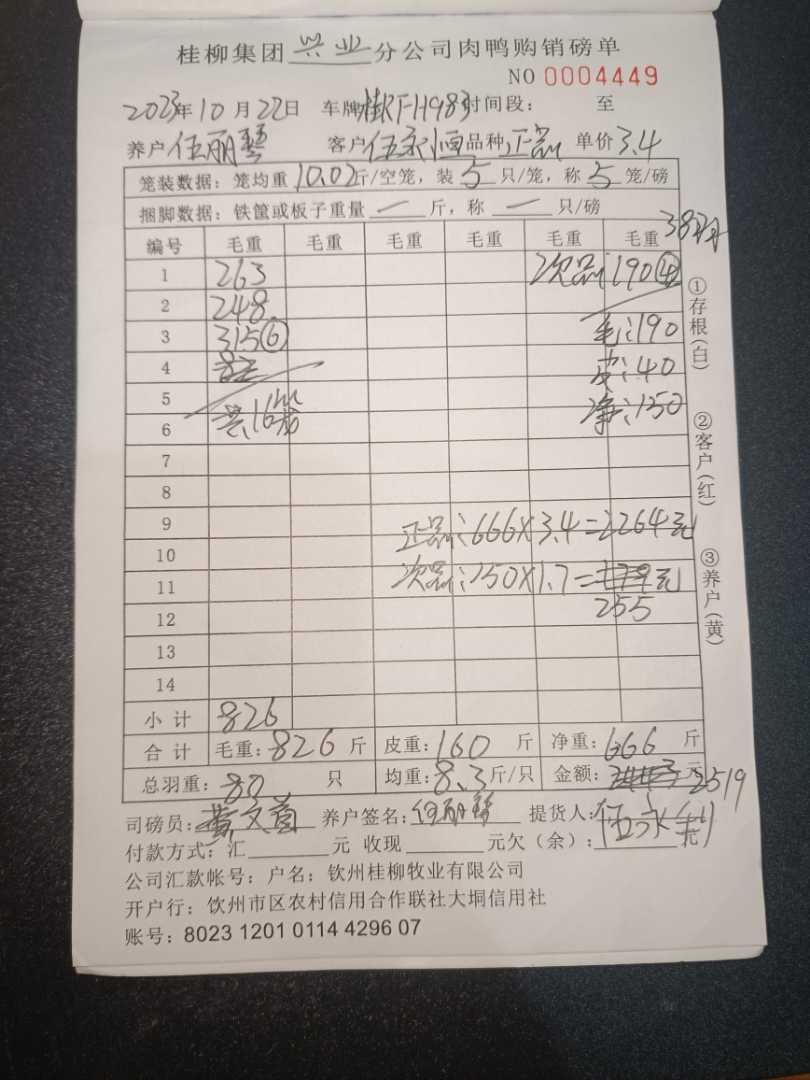 桂柳集团兴业分公司肉鸭购销磅单
NO 0004449
2023年10月22日 车牌桂RFH983时间段: 至
养户伍丽 客户伍永恒品种正品 单价3.4
笼装数据:笼均重10.02斤/空笼,装5只/笼,称5笼/磅
捆脚数据:铁筐或板子重量一斤,称一只/磅
38
编号 毛重 毛重 毛重 毛重 毛重 毛重
1 263 次品:190④
2 248
3 315⑥ 毛:190
4 皮:40
5
6 共16笼 净:150
7
8
9 正品:666×3.4=2264元
10
11 次品:150×1.7=元
12 255
13
14
小计 826
合计 毛重:826斤 皮重:160斤 净重:666斤
总羽重:80只 均重:8.3斤/只 金额:元2519
司磅员:黄文 养户签名:伍丽 提货人:伍永
付款方式:汇元 收现元欠(余):元
公司汇款帐号:户名:钦州桂柳牧业有限公司
开户行:饮州市区农村信用合作联社大垌信用社
账号:8023 1201 0114 4296 07
①存根(白)
②客户(红)
③养户(黄)